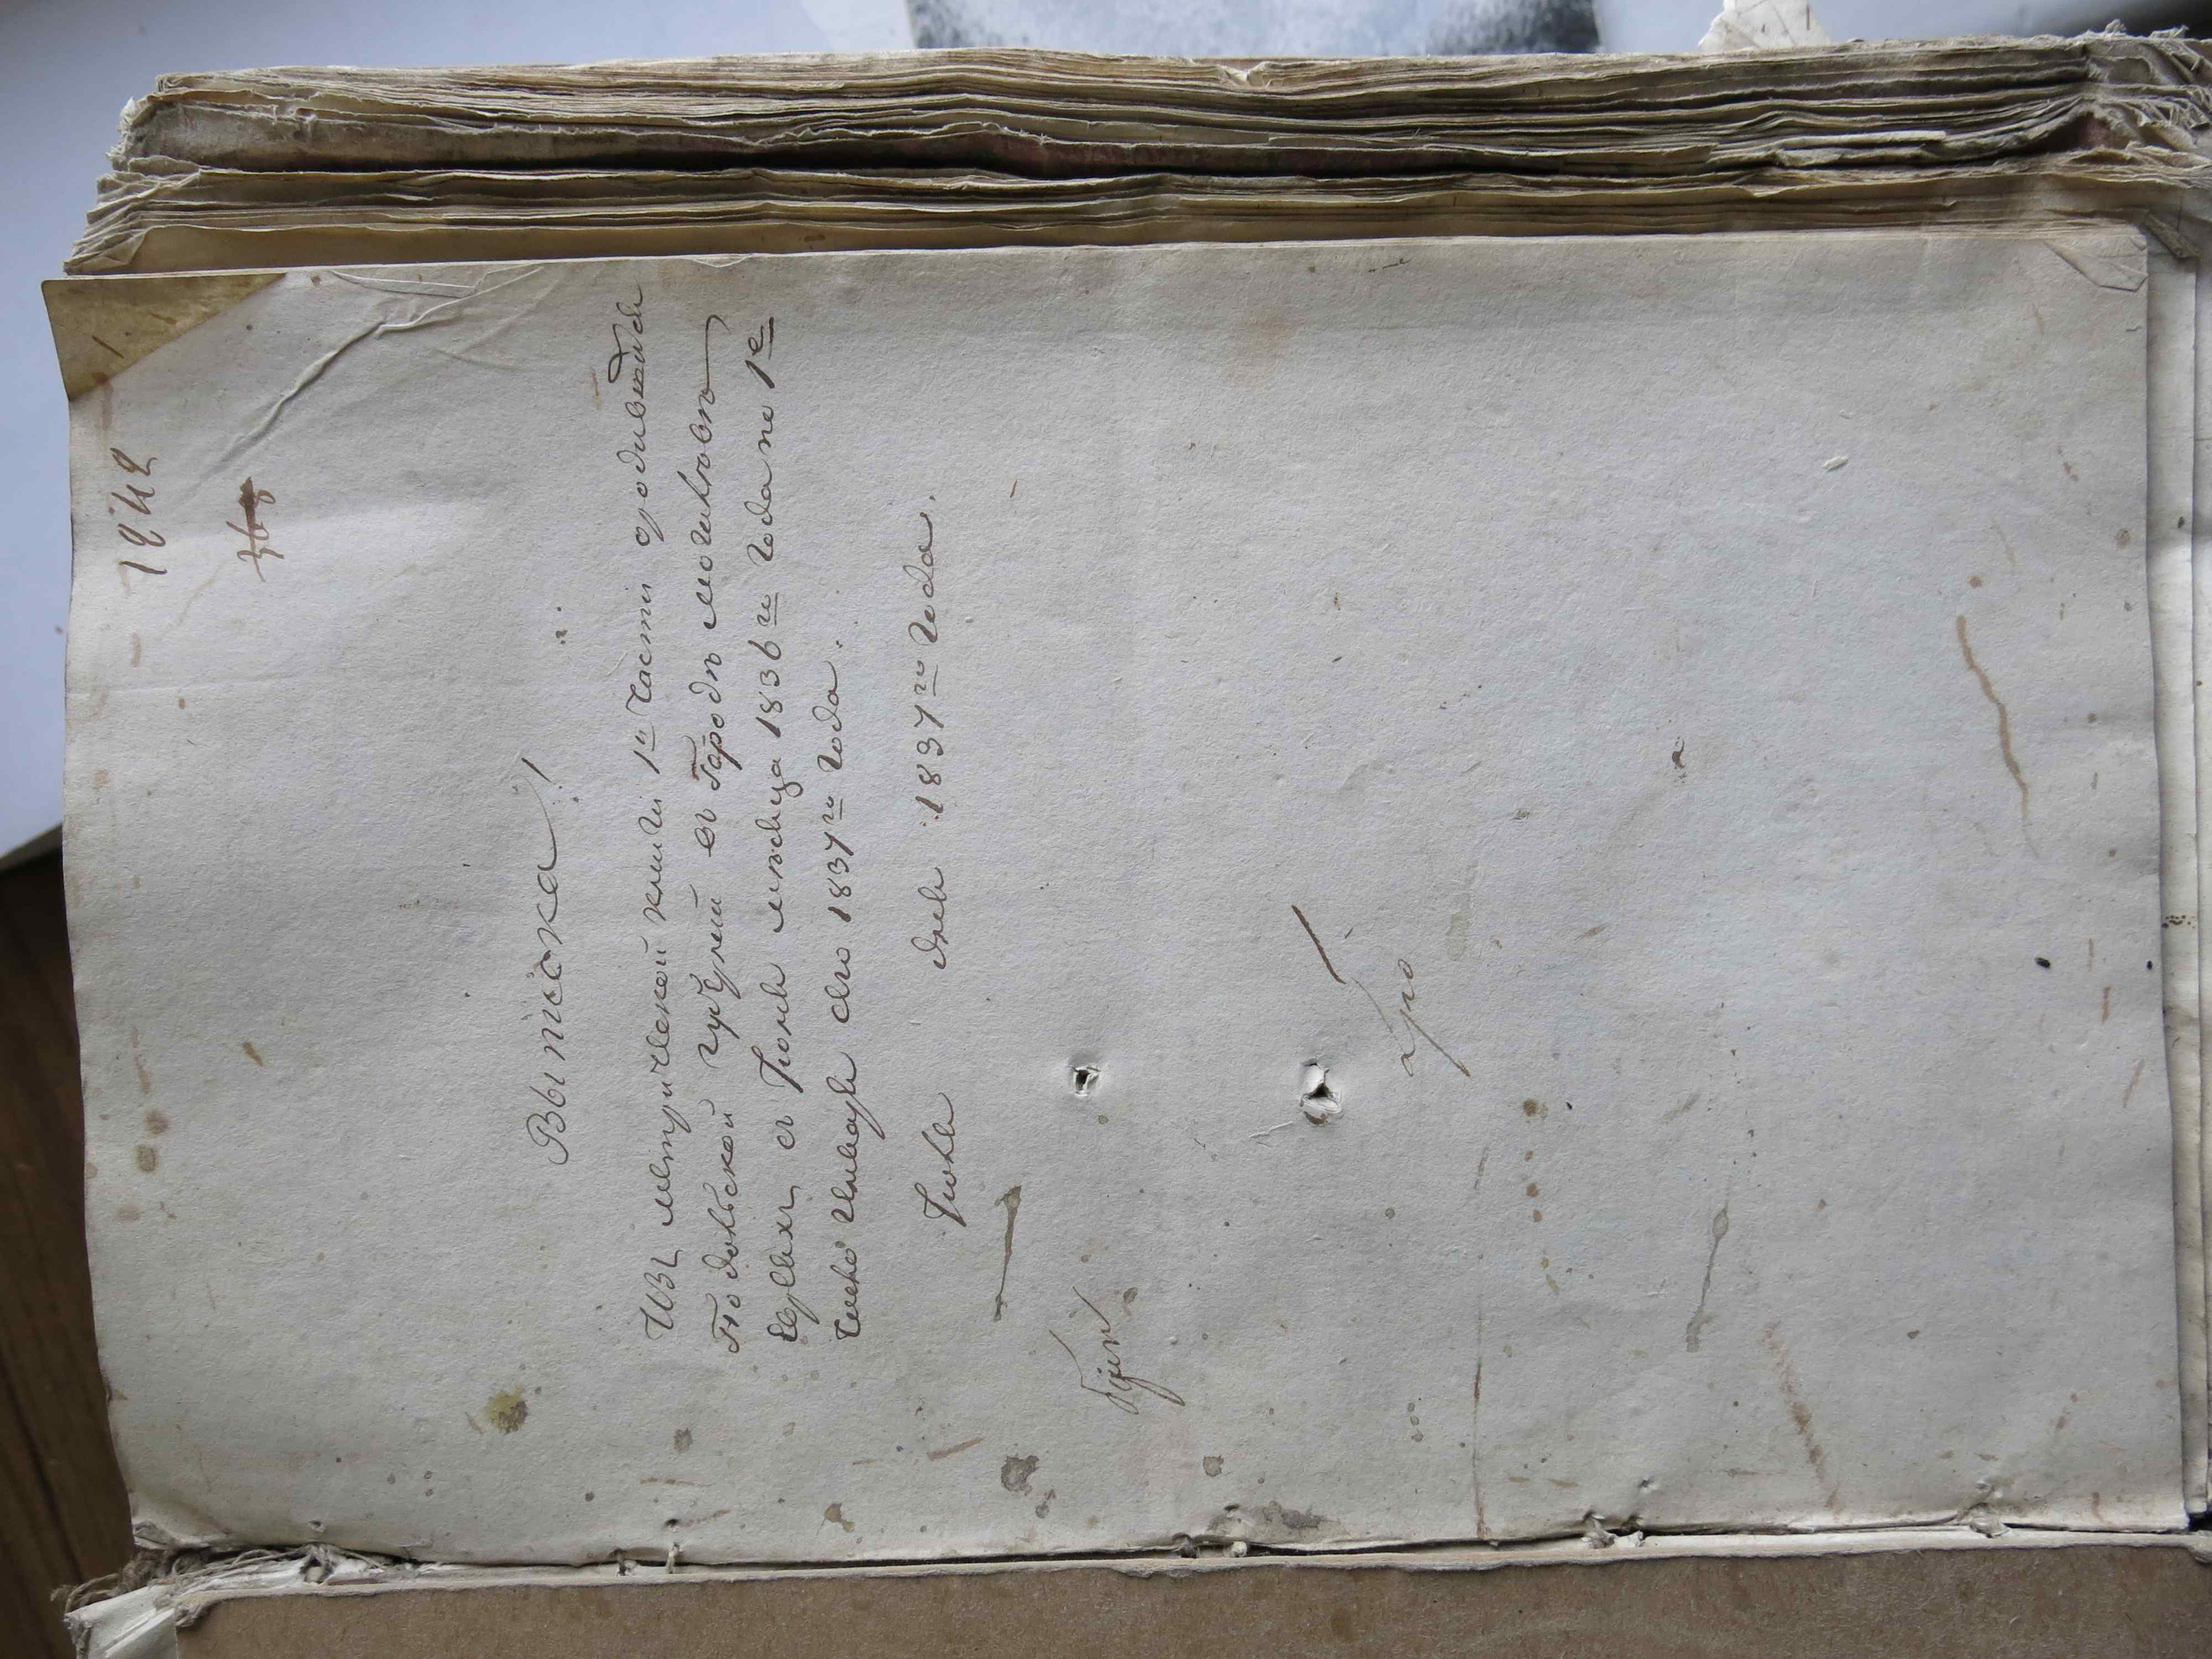 1842
Выписка!
Изъ метрической книги 1й части о родившихся
Подольской губерніи въ Городѣ Могилевѣ
Евреяхъ съ Іюня мѣсяца 1836го года по 1е
число Января сего 1837го года.
Іюня дня 1837го года.